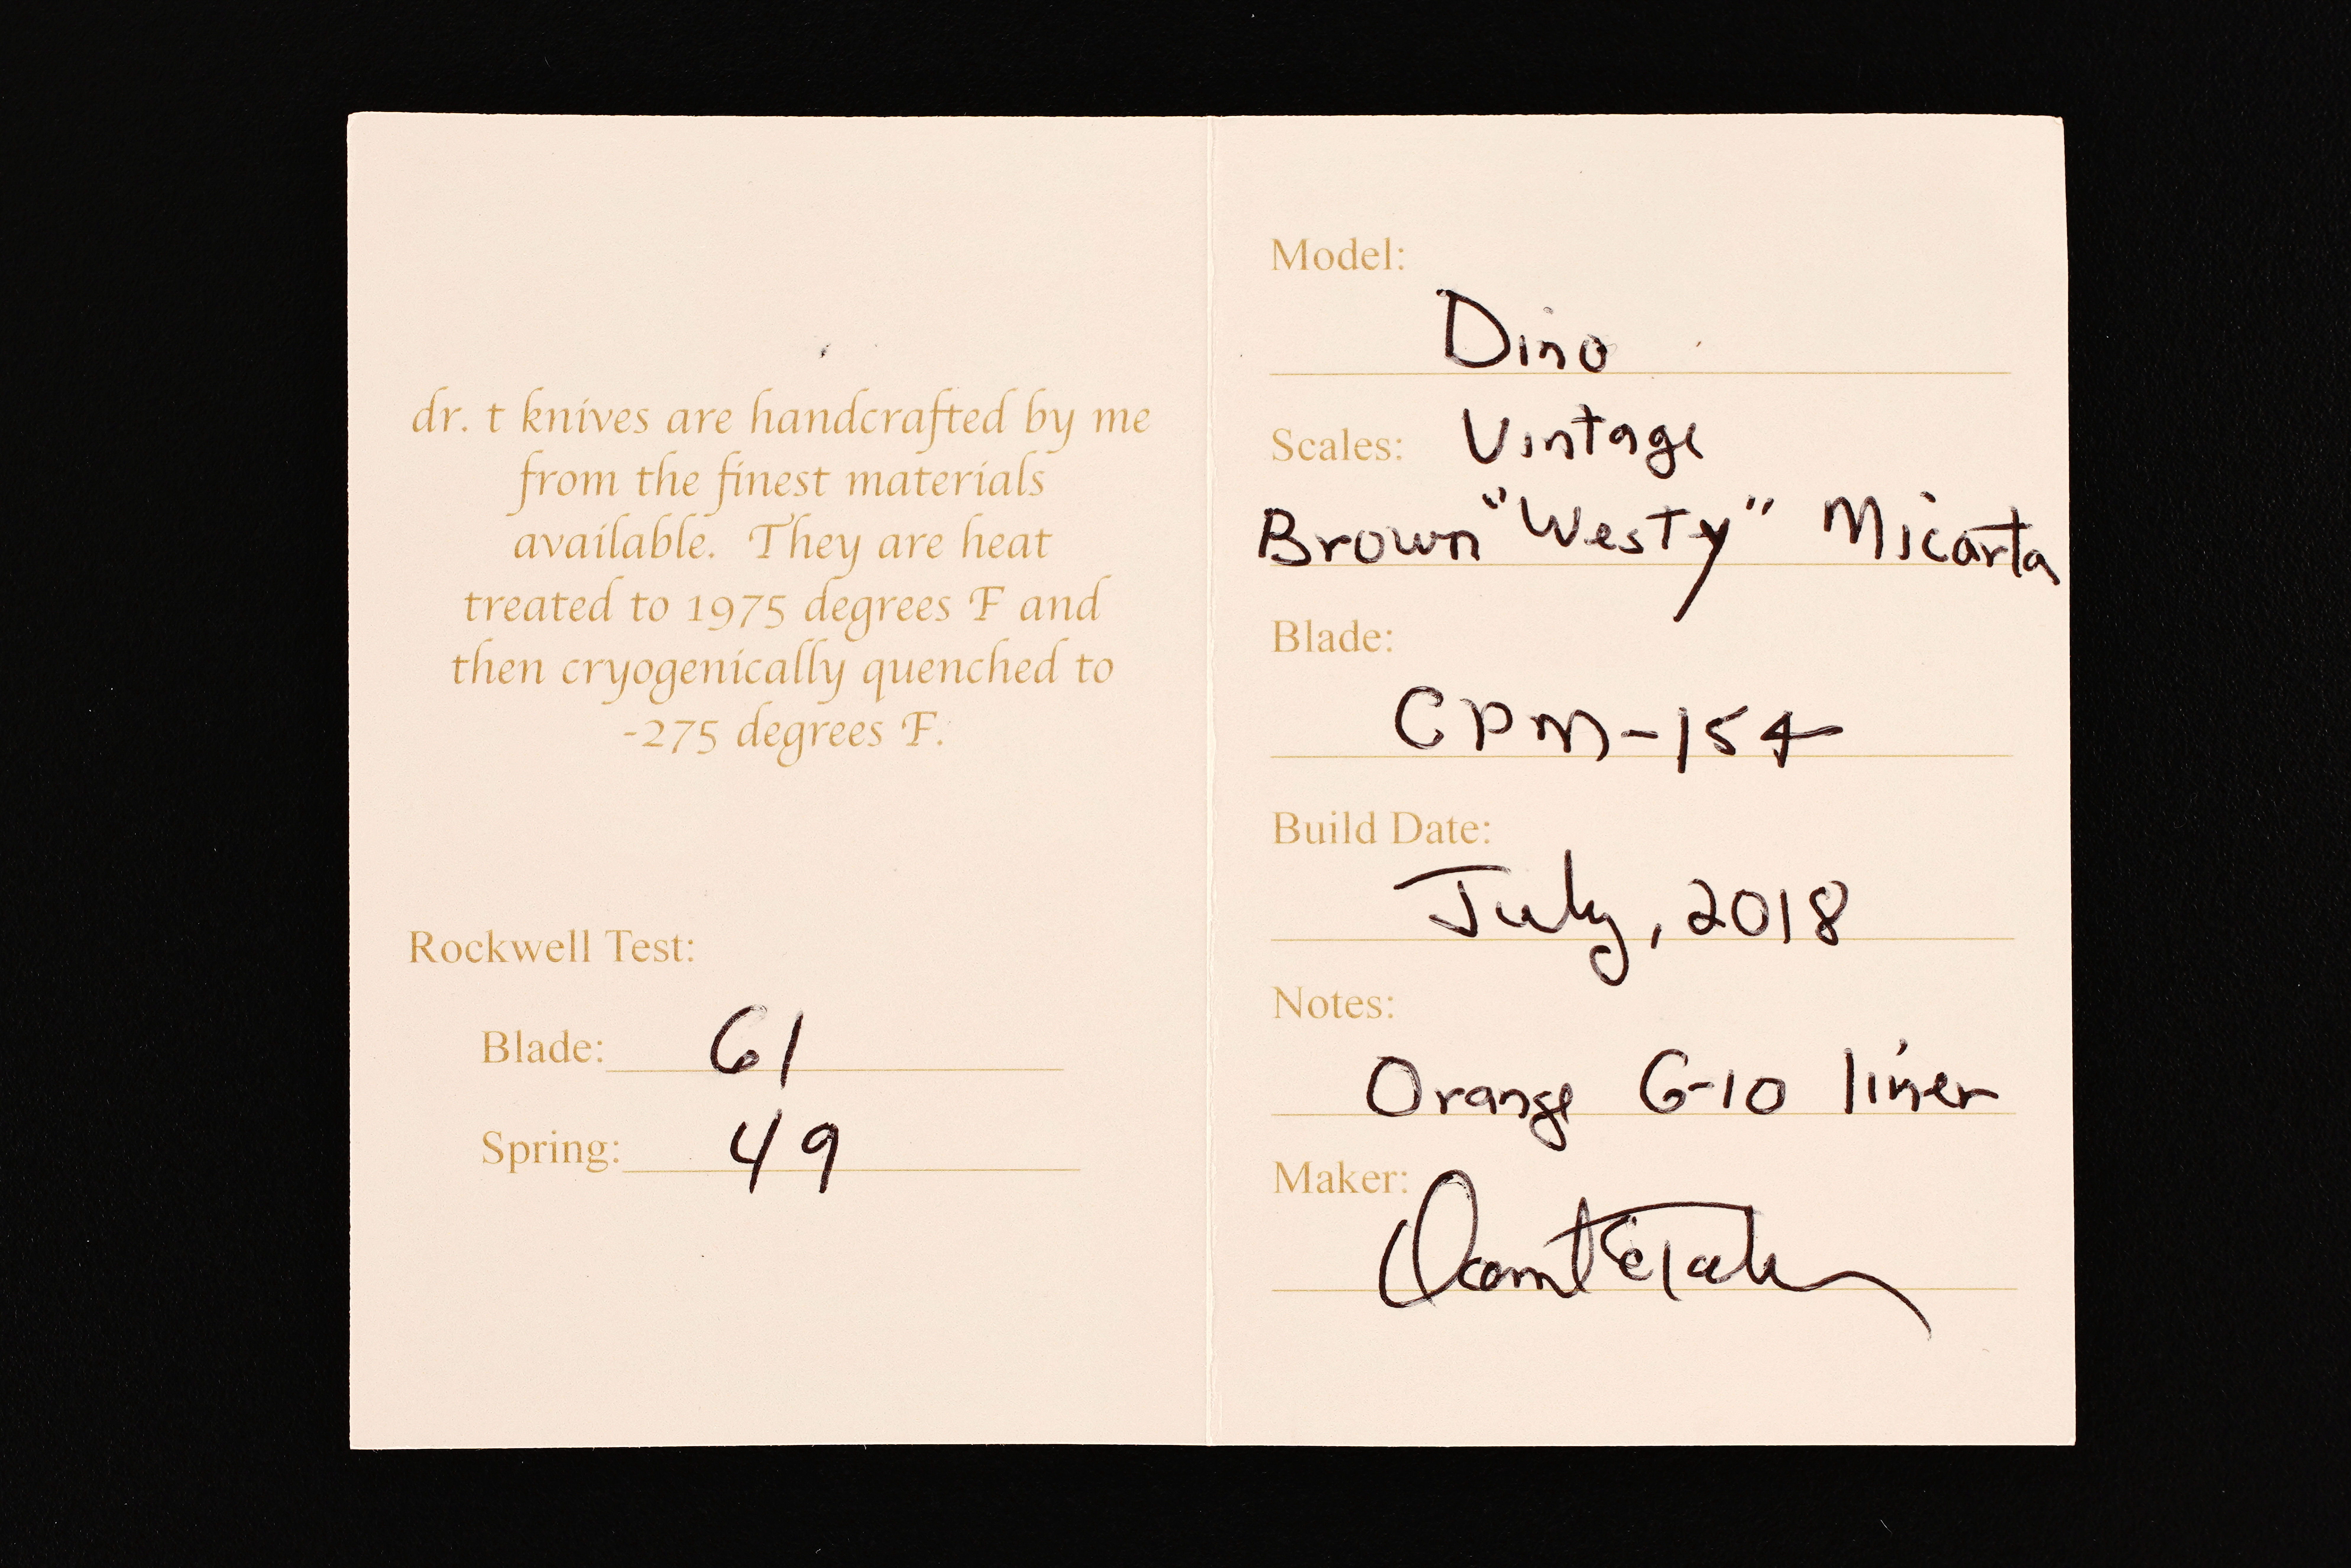 dr. t knives are handcrafted by me
from the finest materials
available. They are heat
treated to 1975 degrees F and
then cryogenically quenched to
-275 degrees F.
Rockwell Test:
Blade: 61
Spring: 49
Model:
Dino
Scales: Vintage
Brown "Westy" Micarta
Blade:
CPM-154
Build Date:
July, 2018
Notes:
Orange G-10 liner
Maker: